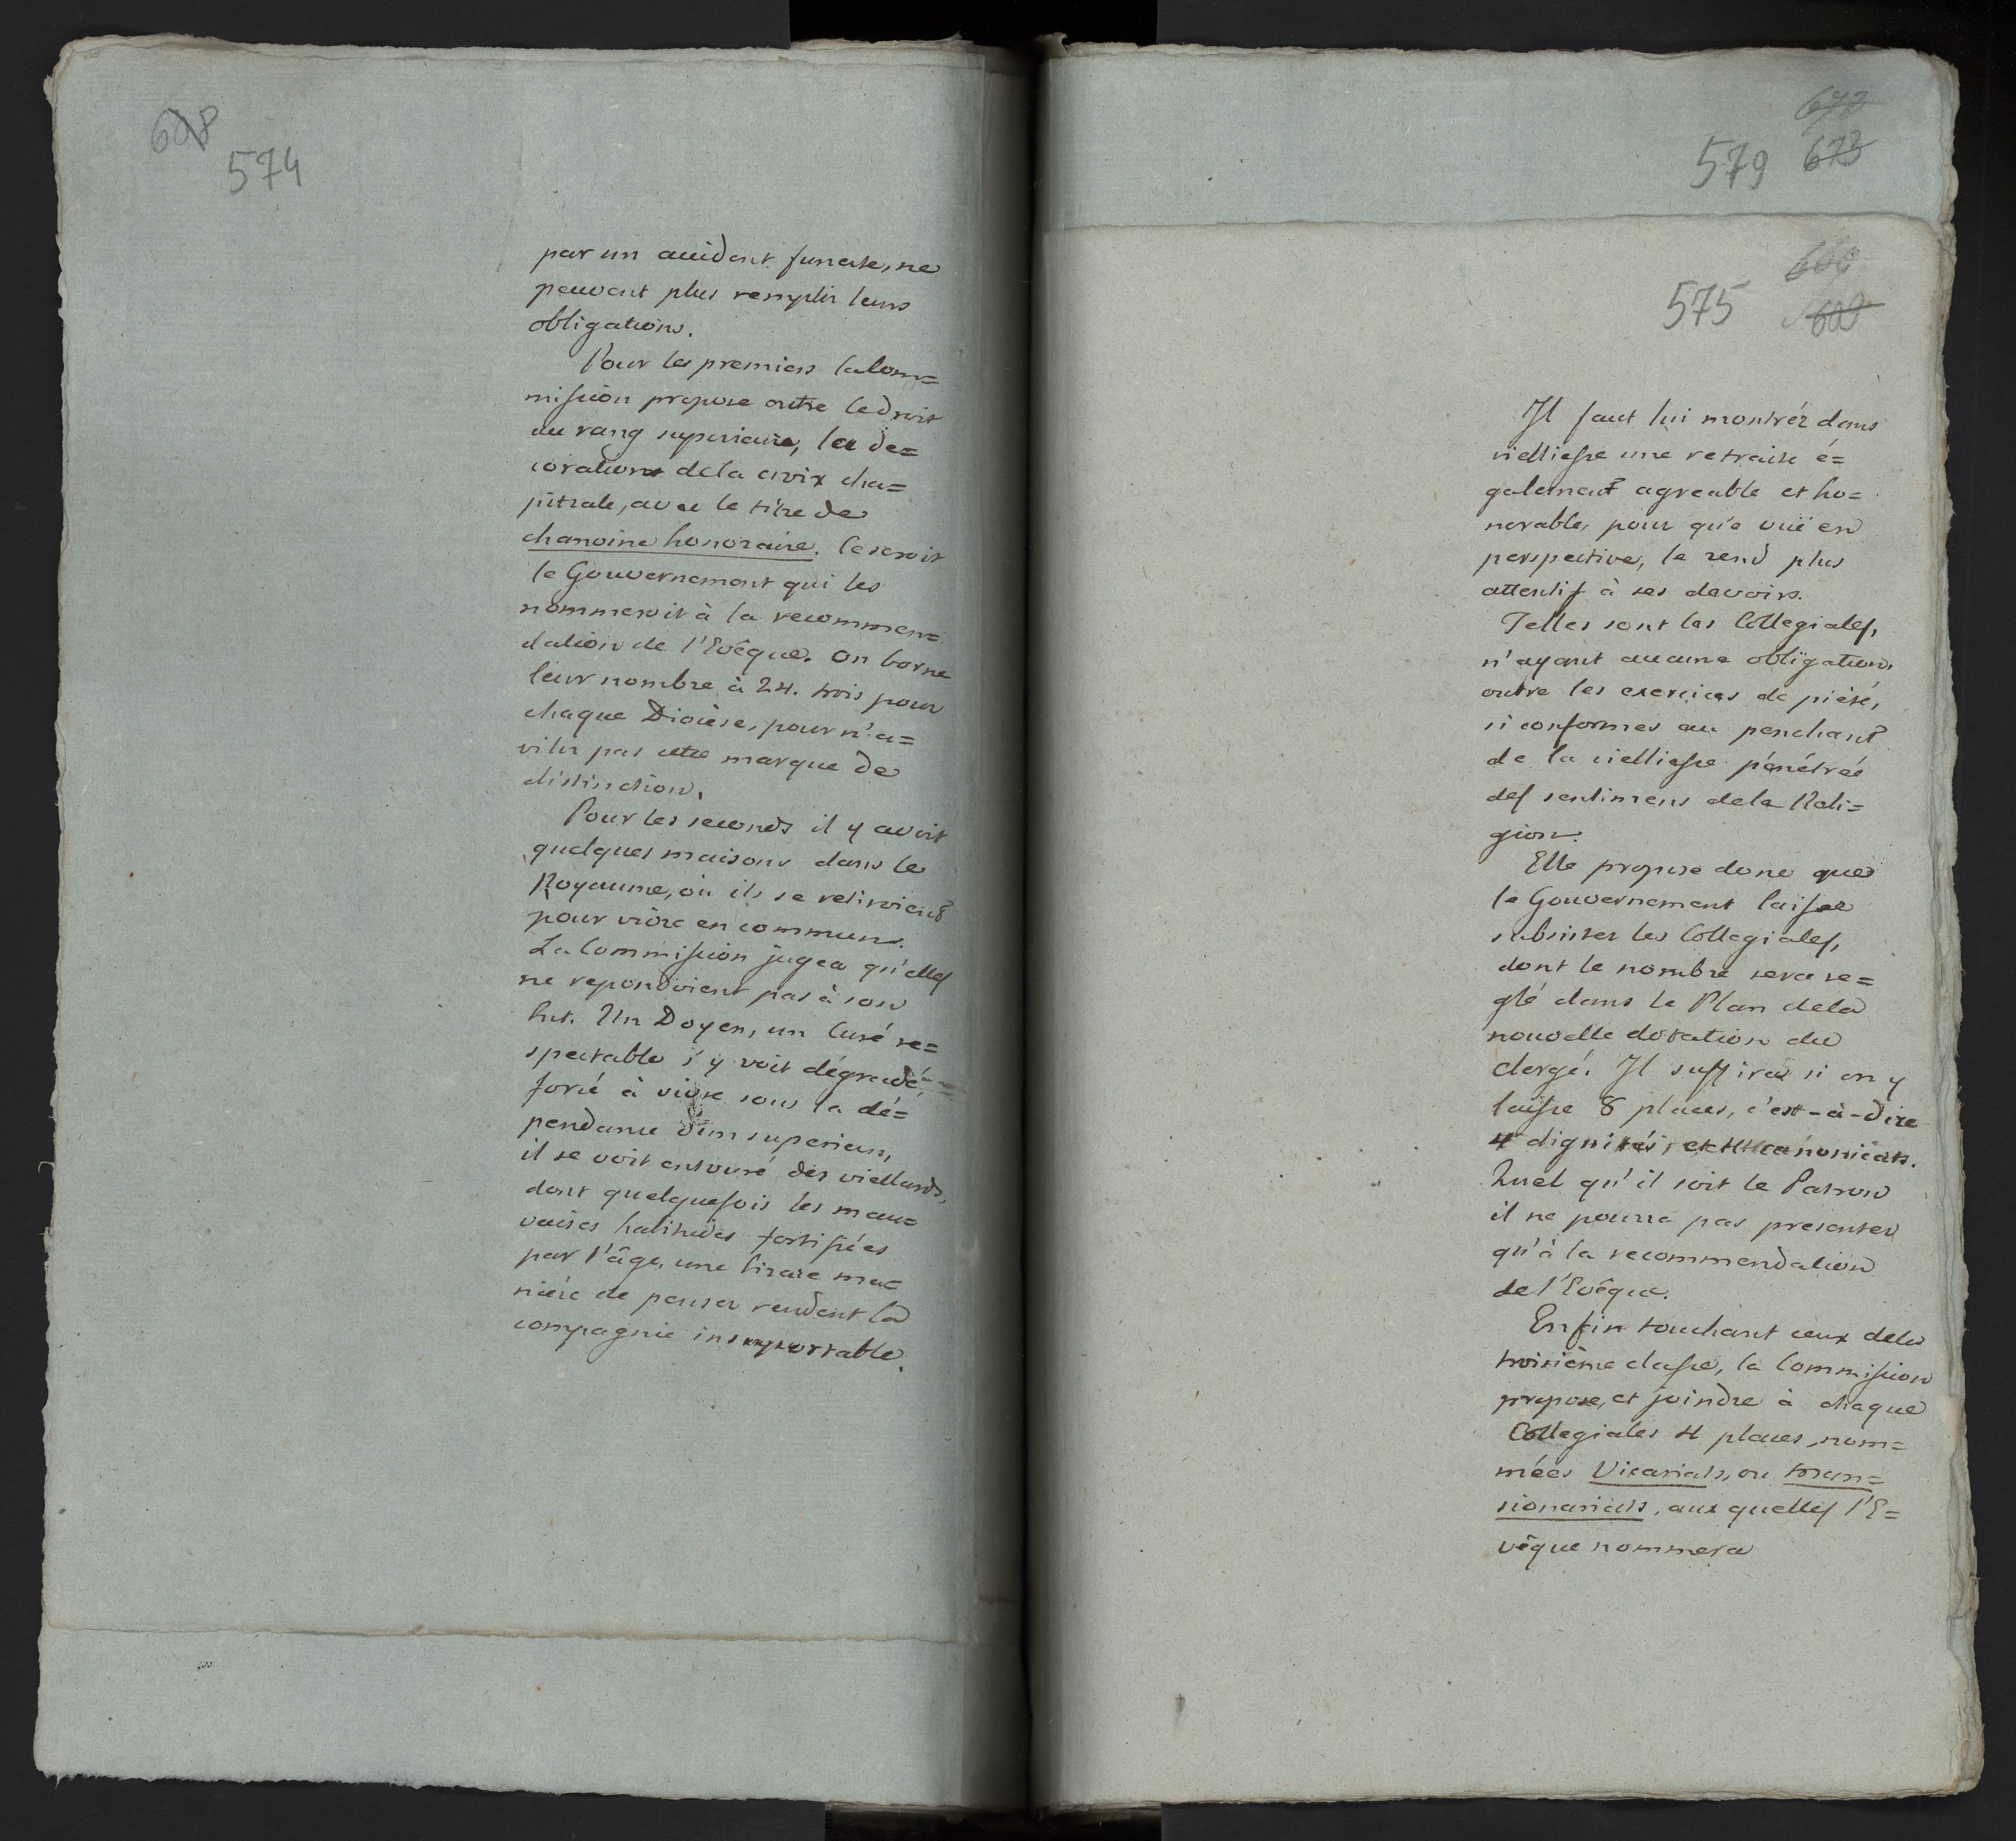 608
574
par un accident funeste, ne
peuvent plus remplir leurs
obligations.
Pour les premiers la Com=
mission propose outre le droit
au rang superieure, la de=
coration de la croix cha=
pitrale, avec le titre de
chanoine honoraire. Ce seroit
le Gouvernement qui les
nommeroit à la recommen=
dation de l'Evêque. On borne
leur nombre à 24. trois pour
chaque Diocèse, pour n'a=
vilir pas cette marque de
distinction.
Pour les seconds il y avoit
quelques maisons dans le
Royaume, où ils se retiroient
pour vivre en commun.
La Commission jugea qu'elles
ne repondoient pas à son
but. Un Doyen, un Curé re=
spectable s'y voit dégradé
forcé à vivre sous la dé=
pendance d'un superieur,
il se voit entouré des viellards,
dont quelquefois les mau=
vaises habitudes fortifiées
par l'âge, une bizare ma=
niére de penser rendent la
compagnie insupportable.
673
579 673
609
575 609
Il faut lui montrér dans
vielliesse une retraite é=
galement agreable et ho=
norable, pour qu'e vuë en
perspective, le rend plus
attentif à ses devoirs.
Telles sont les Collegiales,
n'ayant aucune obligation,
outre les exercices de piété,
si conformes au penchant
de la vielliesse pénétrée
des sentimens de la Reli=
gion.
Elle propose donc que
le Gouvernement laisse
subsister les Collegiales,
dont le nombre sera re=
glé dans le Plan de la
nouvelle dotation du
clergé. Il suffira si on y
laisse 8 places, c'est-à-dire
4 dignités, et 4 canonicats.
Quel qu'il soit le Patron
il ne pourra pas presenter
qu'à la recommendation
de l'Evêque.
Enfin touchant ceux de la
troisième classe, la Commission
propose, et joindre à chaque
Collegiales 4 places, nom=
mées Vicariats, ou man=
sionariats, aux quelles l'E=
vêque nommera